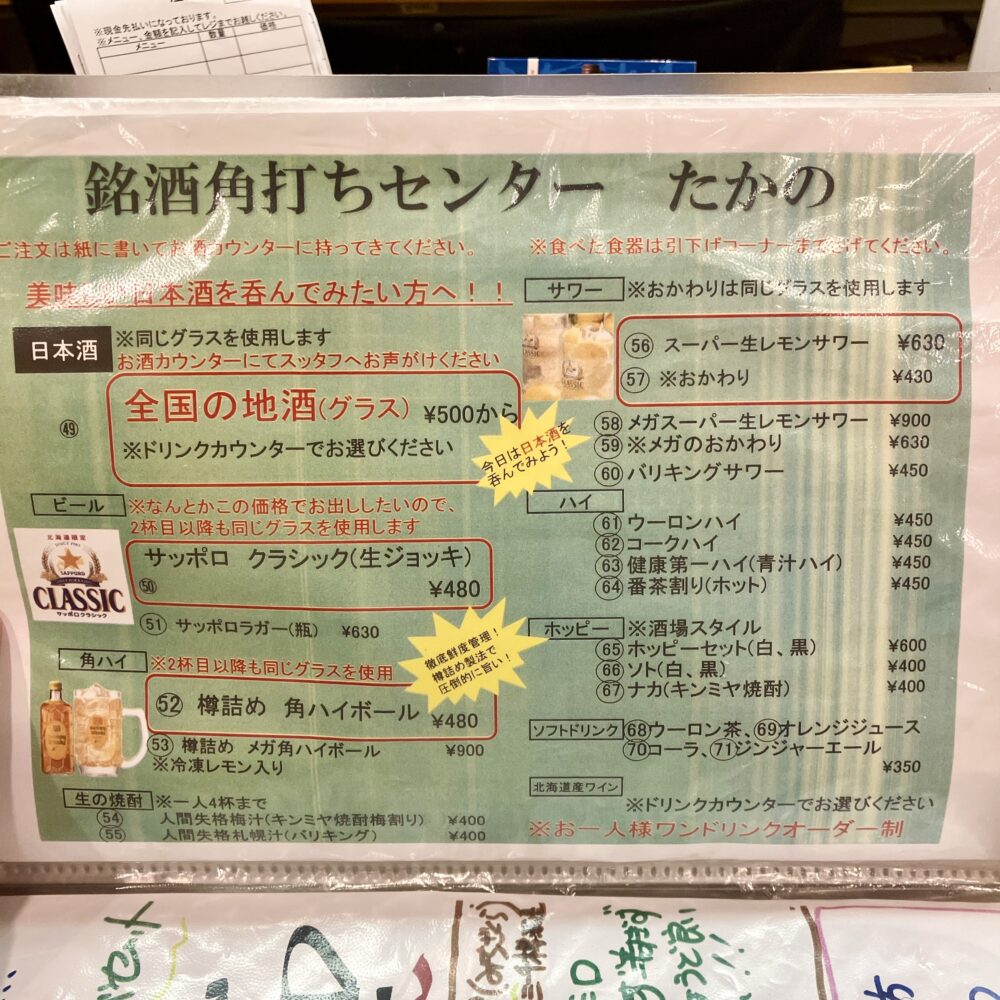 ※現金先払いになっております。
※メニュー、金額を記入してレジまでお越しください。
メニュー 数量 価格
銘酒角打ちセンター たかの
ご注文は紙に書いてお酒カウンターに持ってきてください。
※食べた食器は引下げコーナーまで下げてください。
美味しい日本酒を呑んでみたい方へ！！
日本酒 ※同じグラスを使用します
お酒カウンターにてスッタフへお声がけください
㊾ 全国の地酒(グラス) ¥500から
※ドリンクカウンターでお選びください
今日は日本酒を
呑んでみよう！
ビール ※なんとかこの価格でお出ししたいので、
2杯目以降も同じグラスを使用します
北海道限定
SINCE 1985
SAPPORO
CLASSIC
サッポロクラシック
サッポロ クラシック(生ジョッキ)
㊿ ¥480
51 サッポロラガー(瓶) ¥630
徹底鮮度管理！
樽詰め製法で
圧倒的に旨い！
角ハイ ※2杯目以降も同じグラスを使用
52 樽詰め 角ハイボール ¥480
53 樽詰め メガ角ハイボール ¥900
※冷凍レモン入り
生の焼酎 ※一人4杯まで
54 人間失格梅汁(キンミヤ焼酎梅割り) ¥400
55 人間失格札幌汁(バリキング) ¥400
サワー ※おかわりは同じグラスを使用します
CLASSIC
56 スーパー生レモンサワー ¥630
57 ※おかわり ¥430
58 メガスーパー生レモンサワー ¥900
59 ※メガのおかわり ¥630
60 バリキングサワー ¥450
ハイ
61 ウーロンハイ ¥450
62 コークハイ ¥450
63 健康第一ハイ(青汁ハイ) ¥450
64 番茶割り(ホット) ¥450
ホッピー ※酒場スタイル
65 ホッピーセット(白、黒) ¥600
66 ソト(白、黒) ¥400
67 ナカ(キンミヤ焼酎) ¥400
ソフトドリンク 68ウーロン茶、69オレンジジュース
70コーラ、71ジンジャーエール
¥350
北海道産ワイン
※ドリンクカウンターでお選びください
※お一人様ワンドリンクオーダー制